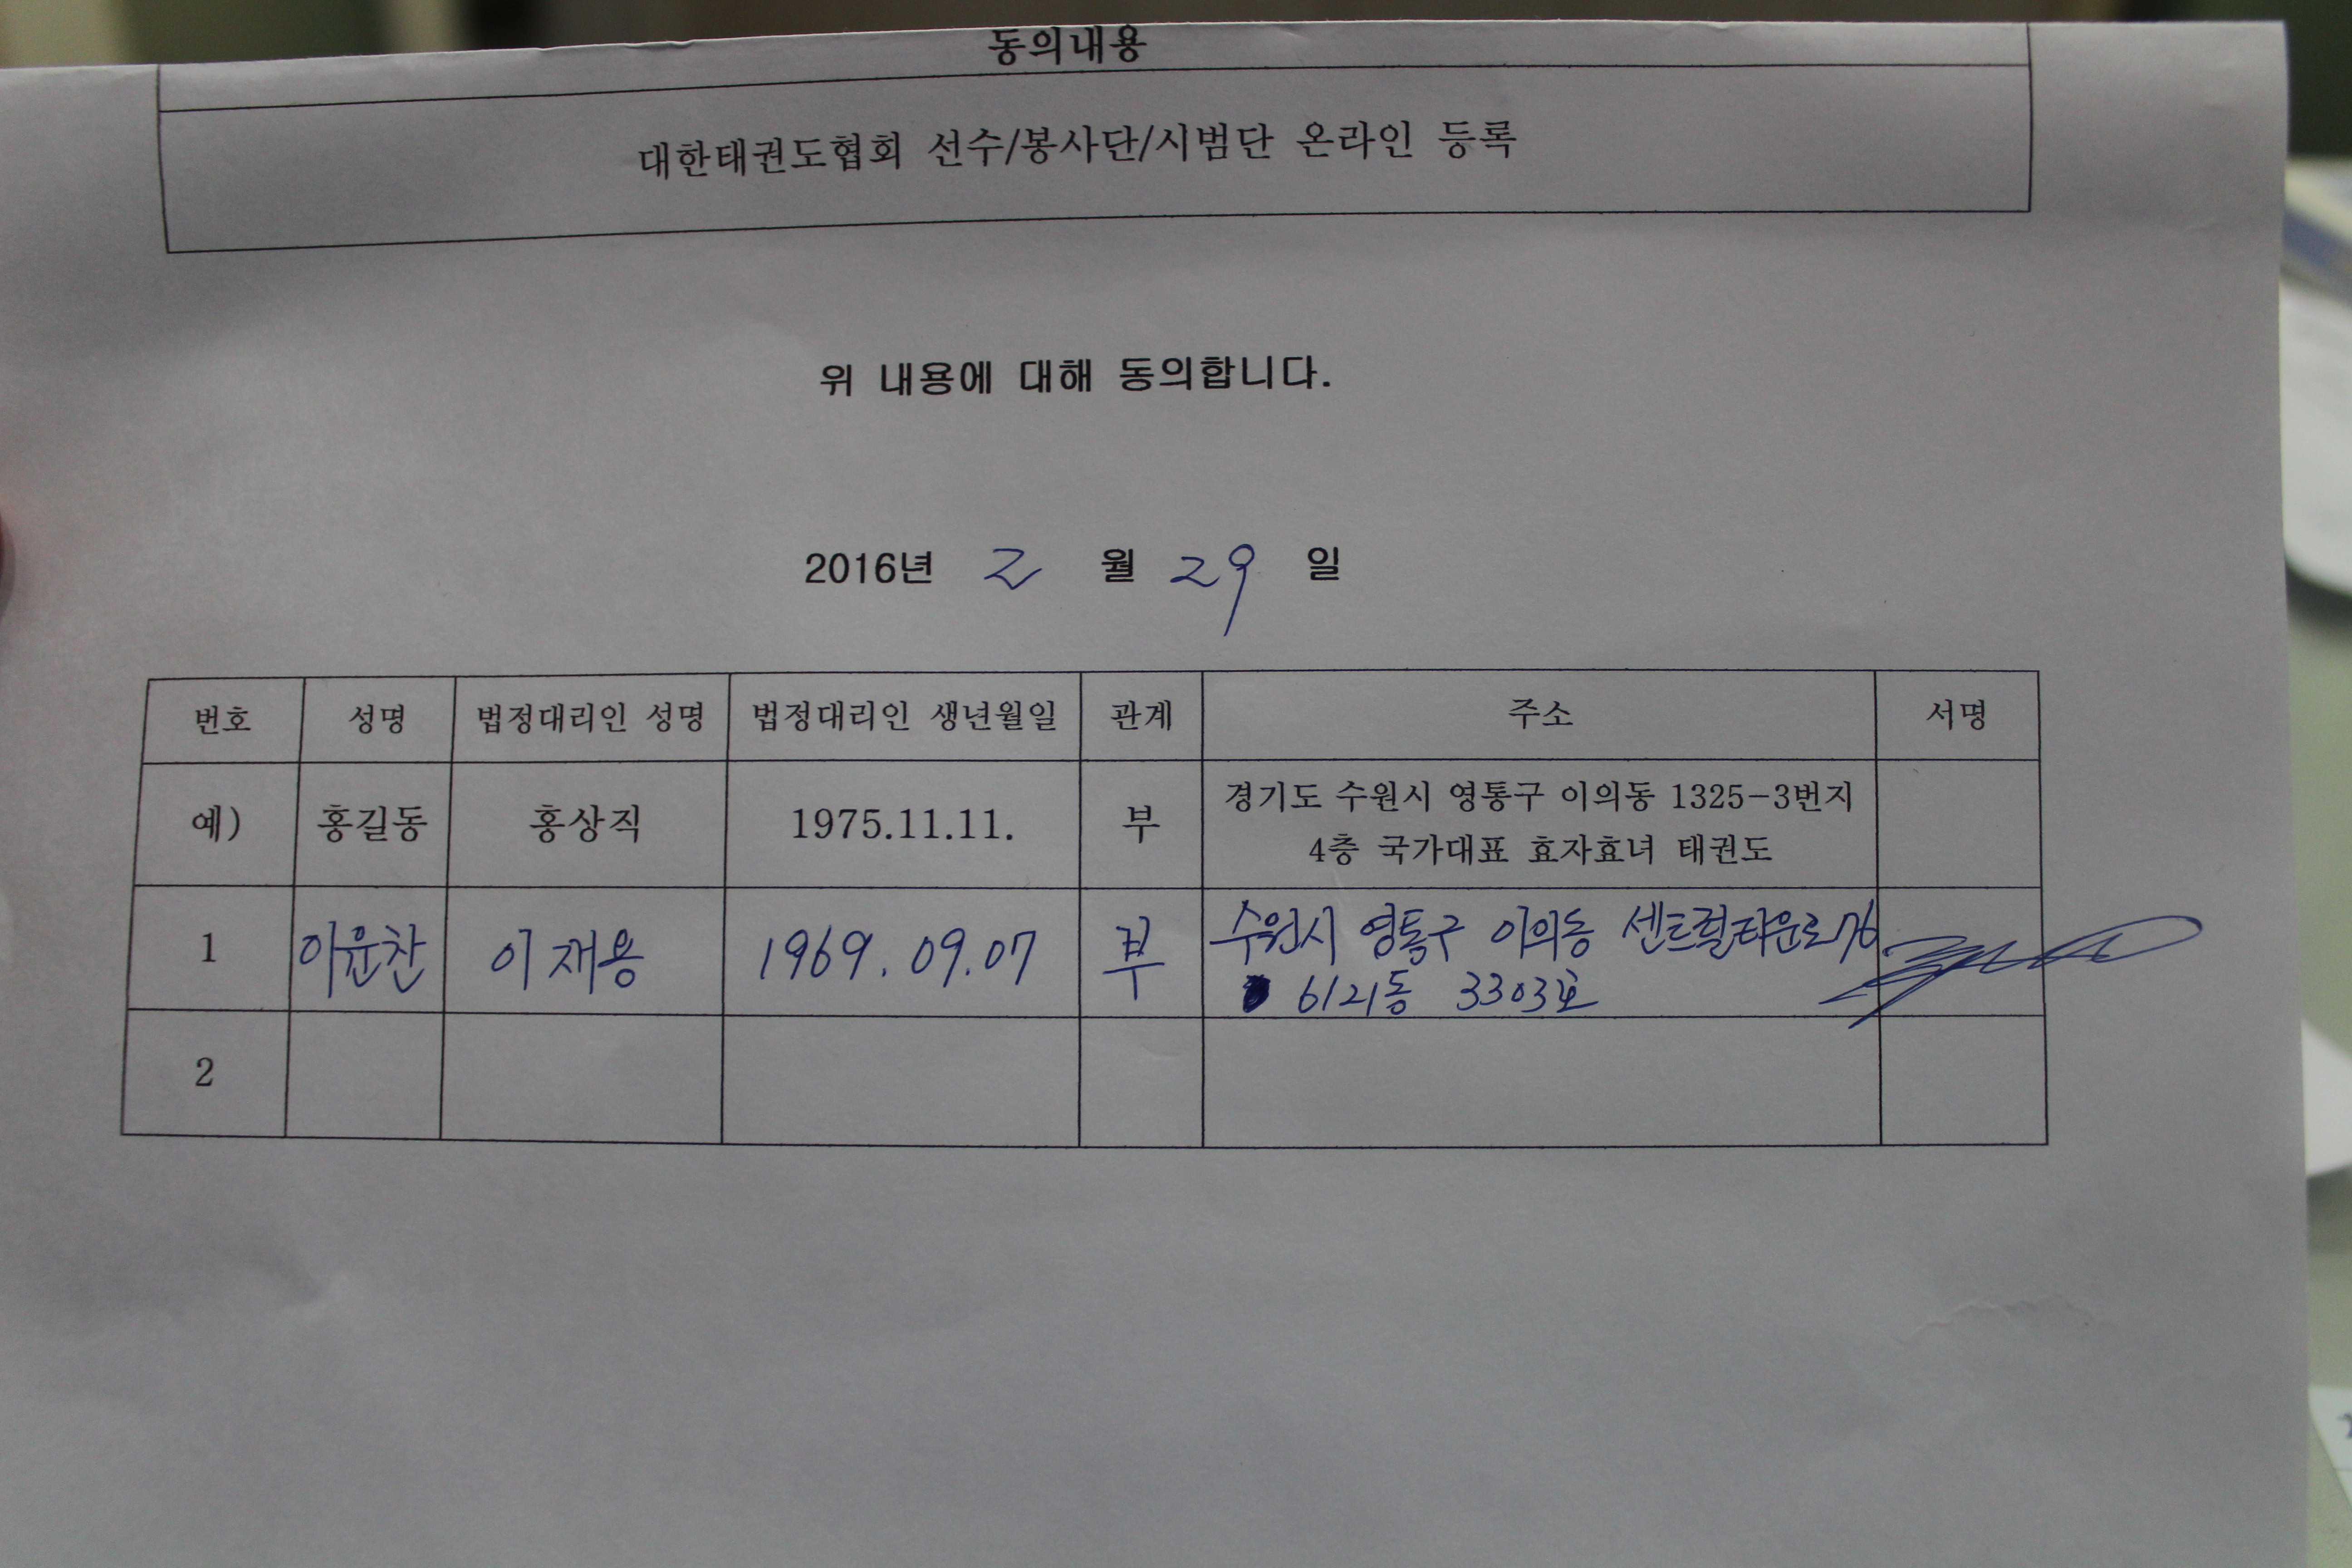 동의내용
대한태권도협회 선수/봉사단/시범단 온라인 등록
위 내용에 대해 동의합니다.
2016년 2 월 29 일
번호 성명 법정대리인 성명 법정대리인 생년월일 관계 주소 서명
예) 홍길동 홍상직 1975.11.11. 부 경기도 수원시 영통구 이의동 1325-3번지
4층 국가대표 효자효녀 태권도
1 이윤찬 이재용 1969.09.07 부 수원시 영통구 이의동 센트럴타운로 76
6121동 3303호
2